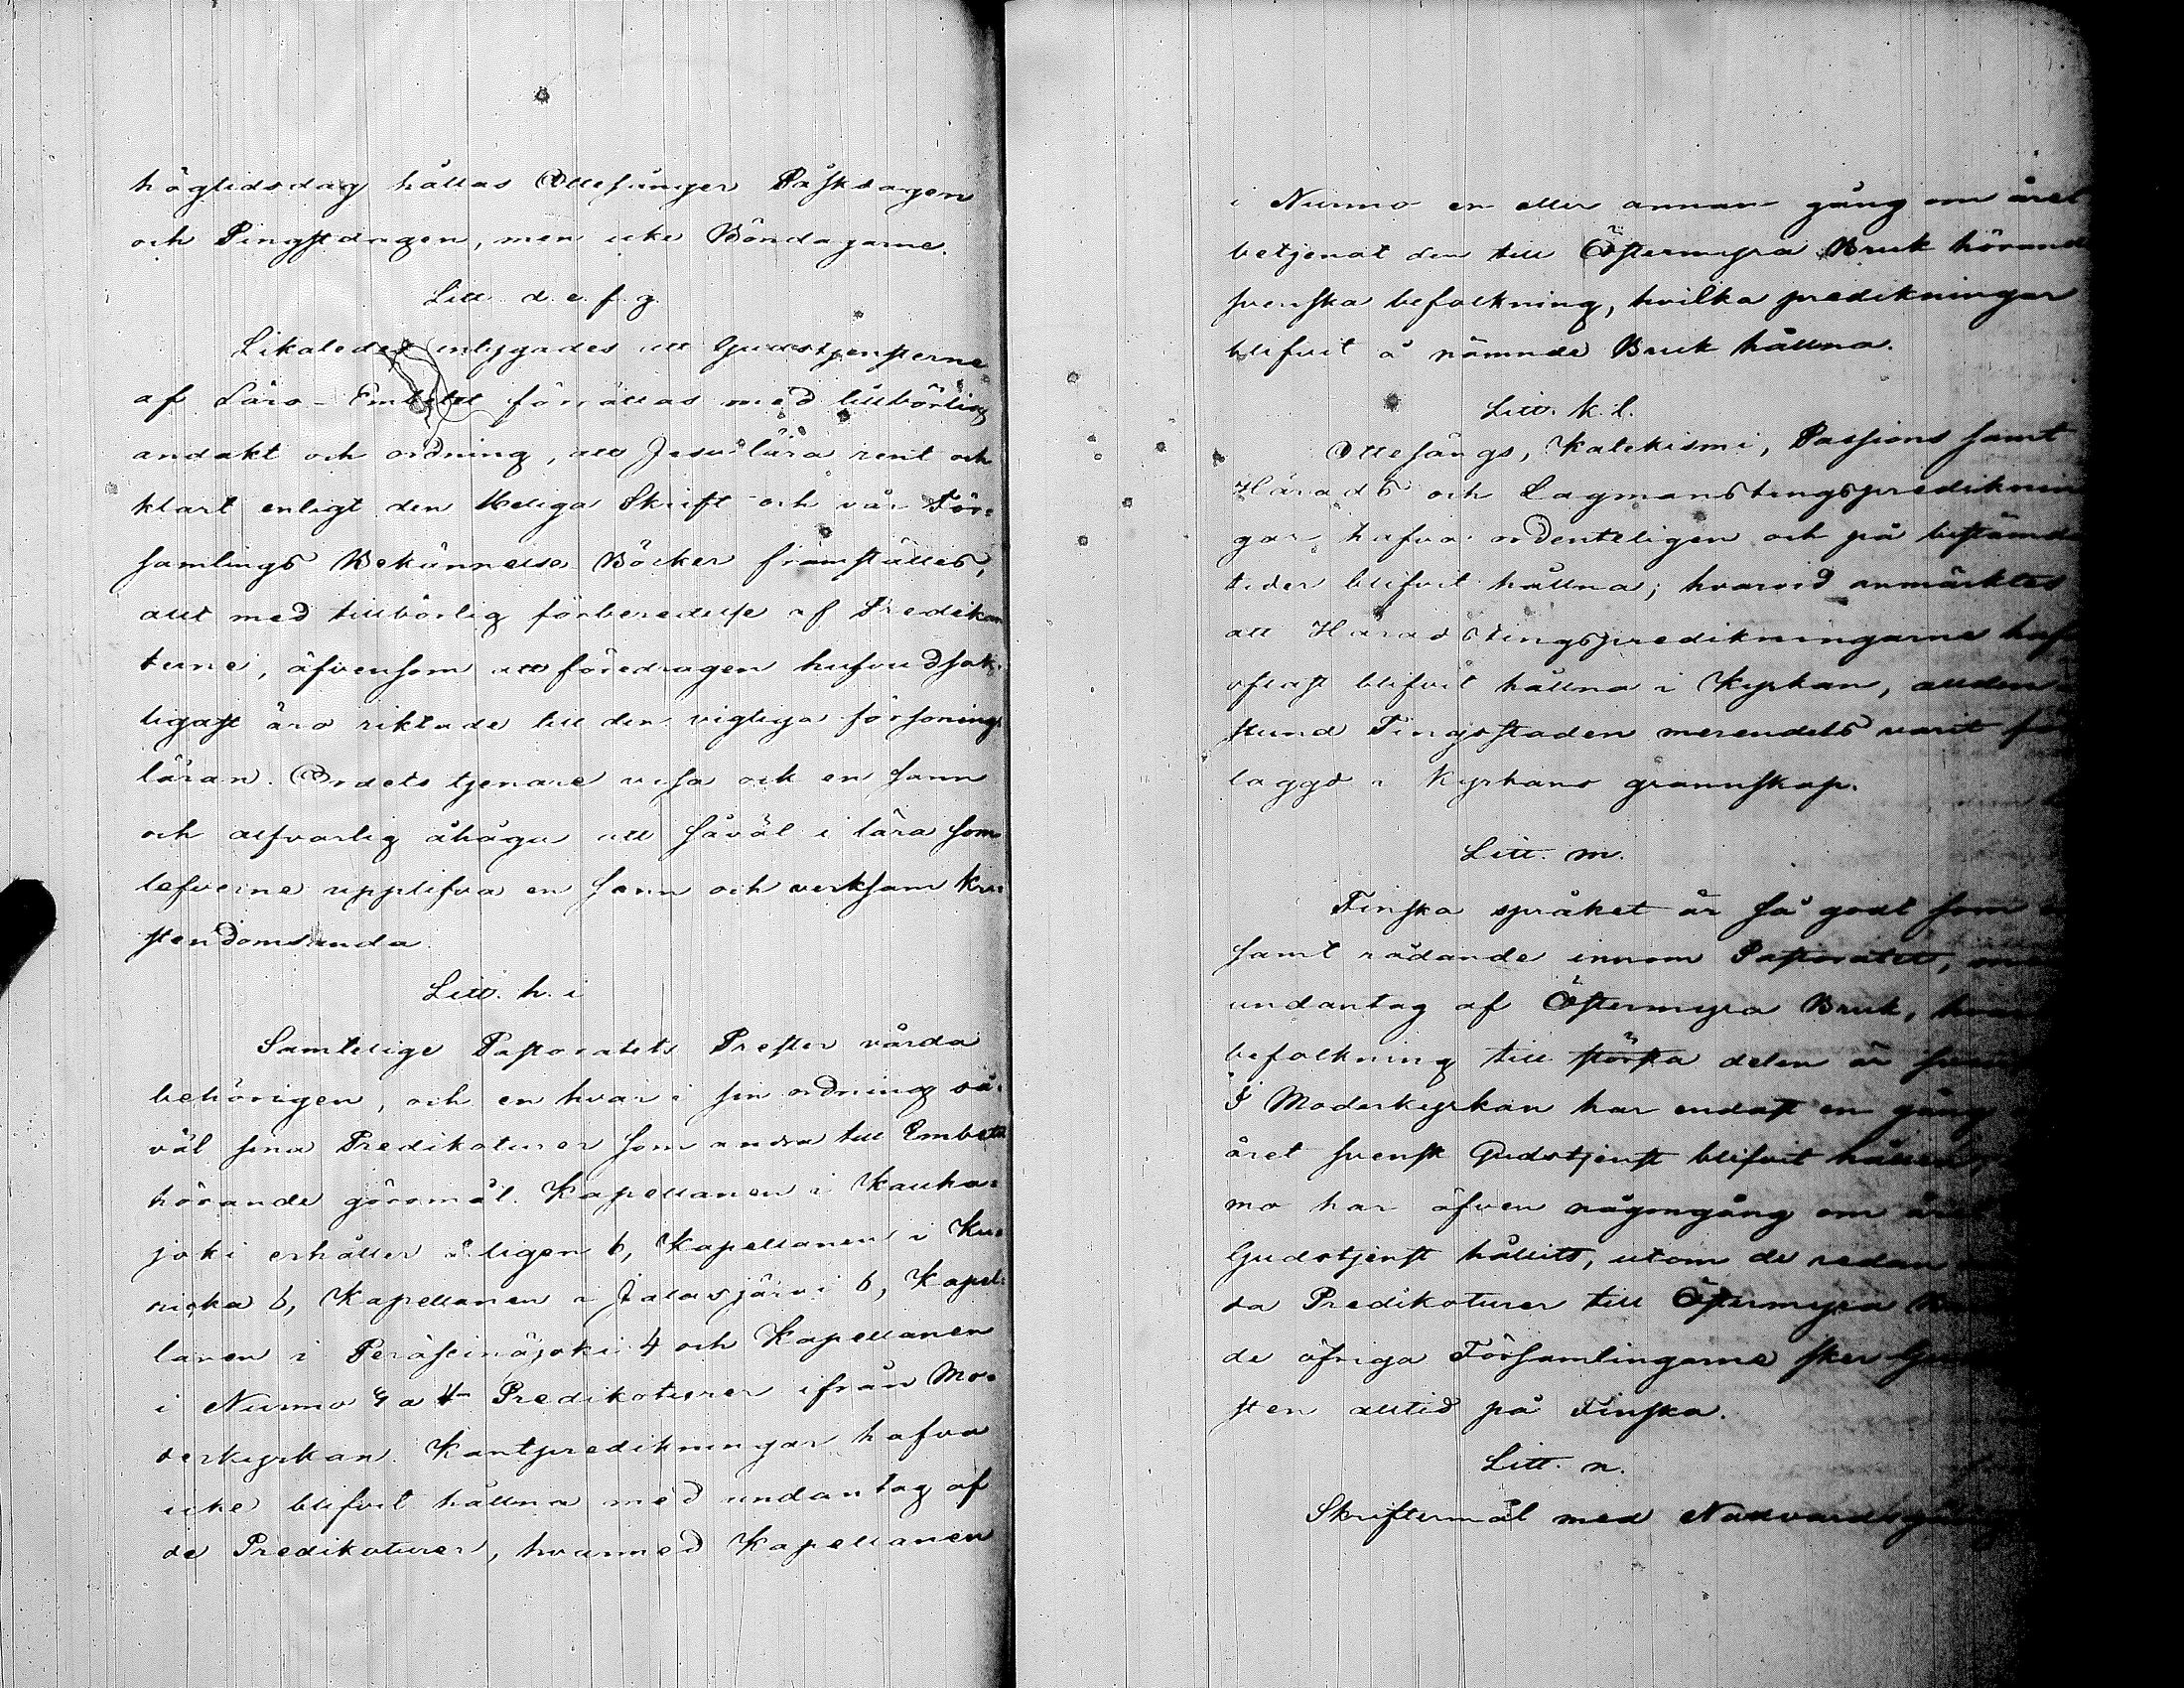 högtidsdag hållas Ottesånger Påskdagen
och Pingstdagen, men icke Böndagarne.
Litt. d. e. f. g.
Likaledes intygades att Gudstjensterne
af Läro-Embetet förrättas med tillbörlig
andakt och ordning, att Jesu lära rent och
klart enligt den Heliga Skrift och vår För-
samlings Bekännelse Böcker framställes,
allt med tillbörlig förberedelse af Predikan
terne, äfvensom att föredragen hufvudsak-
ligast äro riktade till den vigtiga försonings
läran. Ordets tjenare visa ock en sann
och alfvarlig åhåga att såväl i lära som
lefverne upplifva en sann och verksam kri-
stendomsanda.
Litt. h. i
Samtelige Pastoratets Prester vårda
behörigen, och en hvar i sin ordning så-
väl sina Predikoturer som andra till Embetet
hörande göromål. Kapellanen i Kauha-
joki erhåller årligen 6, Kapellanen i Ku-
rikka 6, Kapellanen i Jalasjärvi 6, Kapel-
lanen i Peräseinäjoki 4 och Kapellanen
i Nurmo a 4 Predikoturer ifrån Mo-
derkyrkan. Kantpredikningar hafva
icke blifvit hållna med undantag af
de Predikoturer, hvarmed Kapellanen
i Nurmo en eller annan gång om året
betjenat den till Östermyra Bruk hörande
svenska befolkning, hvilka predikningar
blifvit å nämnde Bruk hållna.
Litt. k. l.
Ottesångs, Katekismi, Passions samt
Härads och Lagmanstingsprediknin
gar hafva ordenteligen och på bestämda
tider blifvit hållna; hvarvid anmärktes
att Häradstingspredikningarne haf
oftast blifvit hållna i Kyrkan, allden
stund Tingsstaden merendels varit för
laggd i Kyrkans grannskap.
Litt. m.
Finska språket är så godt som
samt rådande innom Pastoratet, med
undantag af Östermyra Bruk, hvars
befolkning till största delen är
I Moderkyrkan har endast en gång
året svensk Gudstjenst blifvit hållen,
mo har äfven någongång om året
Gudstjenst hållits, utom de redan
da Predikoturer till Östermyra Bruk
de öfriga Församlingarne sker
sten alltid på Finska.
Litt. n.
Skriftermål med Nattvardsgång